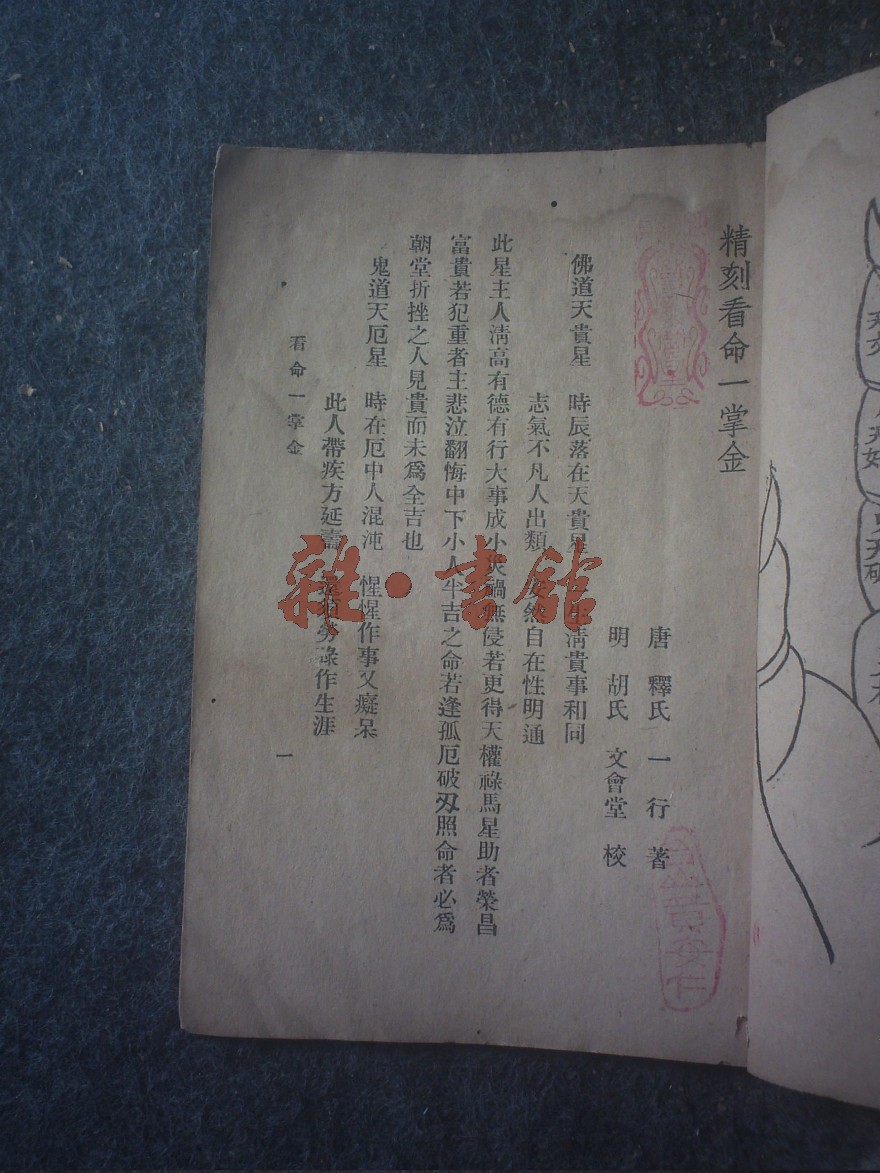 精刻看命一掌金
唐 釋氏 一行 著
明 胡氏 文會堂 校
佛道天貴星 時辰落在天貴星 清貴事和同
志氣不凡人出類 然自在性明通
此星主人清高有德有行大事成小 禍無侵若更得天權祿馬星助者榮昌
富貴若犯重者主悲泣翻悔中下小人半吉之命若逢孤厄破刃照命者必爲
朝堂折挫之人見貴而未爲全吉也
鬼道天厄星 時在厄中人混沌 惺惺作事又癡呆
此人帶疾方延壽 勞碌作生涯
看命一掌金
一
雜·書館